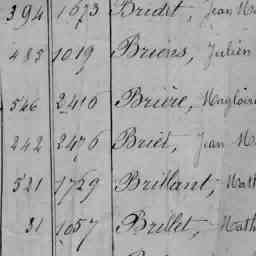 394 1673 Bridet, Jean M
485 1019 Briens, Julien
546 2416 Brière, Magloire
242 2476 Briet, Jean M
521 1729 Brillant, Math
31 1057 Brillet, Math